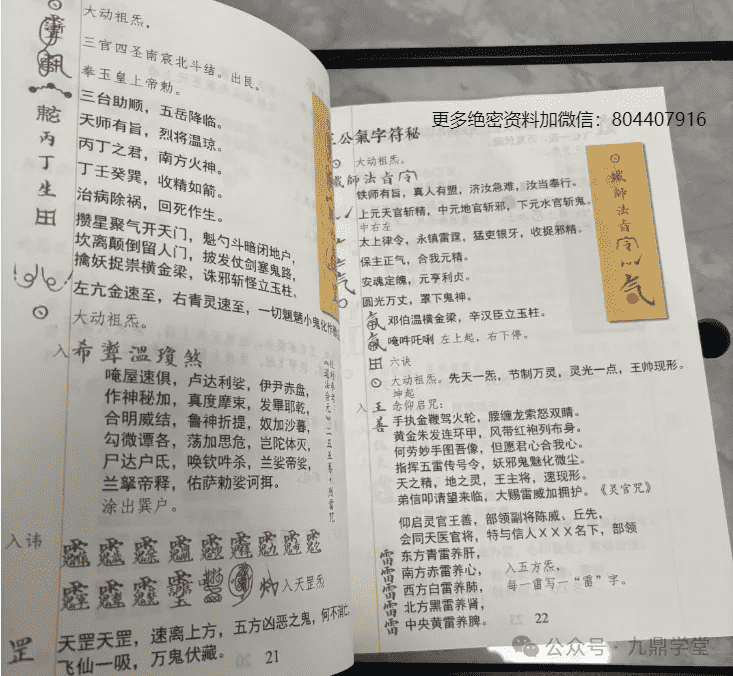 大动祖炁,
三官四圣南哀北斗结。出艮。
奉玉皇上帝勅。
三台助顺,五岳降临。
天师有旨,烈将温琼。
丙丁之君,南方火神。
丁壬癸巽,收精如箭。
治病除祸,回死作生。
攒星聚气开天门,魁勺斗暗闭地户,
坎离颠倒留人门,披发仗剑塞鬼路,
擒妖捉祟横金梁,诛邪斩怪立玉柱。
左亢金速至,右青灵速至,一切魍魉小鬼化作
大动祖炁。
丙丁生
田
入希
温琼煞
唵屋速俱,卢达利娑,伊尹赤盘,
作神秘加,真度摩束,发畢耶乾,
合明威结,鲁神折提,奴加沙暮,
勾微谭各,荡加思危,岂陀体灭,
尸达户氐,唤钦吽杀,兰娑帝娑,
兰拏帝释,佑萨勅娑诃挕。
涂出巽户。
入讳
入天罡炁
罡
天罡天罡,速离上方,五方凶恶之鬼,何不消亡
飞仙一吸,万鬼伏藏。
21
更多绝密资料加微信:804407916
王公氣字符秘
大动祖炁。
鐵師法旨
铁师有旨,真人有盟,济汝急难,汝当奉行。
上元天官斩精,中元地官斩邪,下元水官斩鬼。
中右左
太上律令,永镇雷霆,猛吏银牙,收捉邪精。
保主正气,合我元精。
安魂定魄,元亨利贞。
圆光万丈,罩下鬼神。
邓伯温横金梁,辛汉臣立玉柱。
唵吽吒唎 左上起,右下停。
田 六诀
大动祖炁。先天一炁,节制万灵,灵光一点,王帅现形。
坤起
入王善 念仰启咒:
手执金鞭驾火轮,腰缠龙索怒双睛。
黄金朱发连环甲,风带红袍列布身。
何劳妙手图吾像,但愿君心合我心。
指挥五雷传号令,妖邪鬼魅化微尘。
天之精,地之灵,王主将,速现形。
弟信叩请望来临,大赐雷威加拥护。《灵官咒》
仰启灵官王善,部领副将陈威、丘先,
会同天医官将,特与信人XXX名下,部领
雷 东方青雷养肝,
雷 南方赤雷养心, 入五方炁,
雷 西方白雷养肺, 每一雷写一“雷”字。
雷 北方黑雷养肾,
雷 中央黄雷养脾。
22
鐵師法旨
气
公众号·九鼎学堂